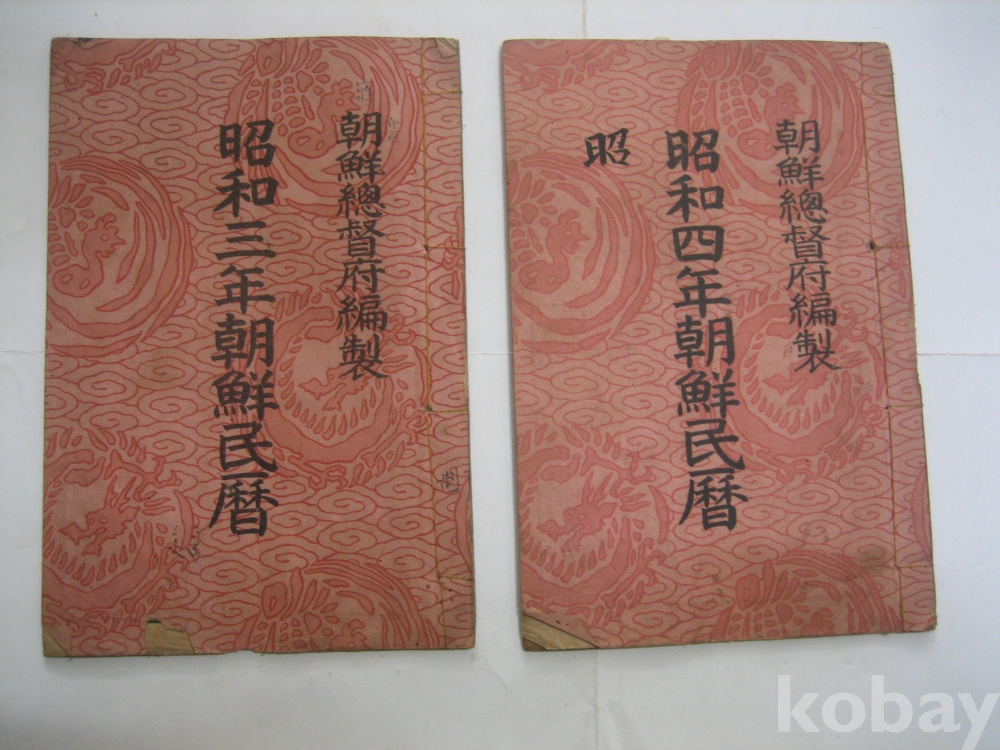 朝鮮總督府編製
昭和三年朝鮮民暦
朝鮮總督府編製
昭和四年朝鮮民暦
昭
kobay